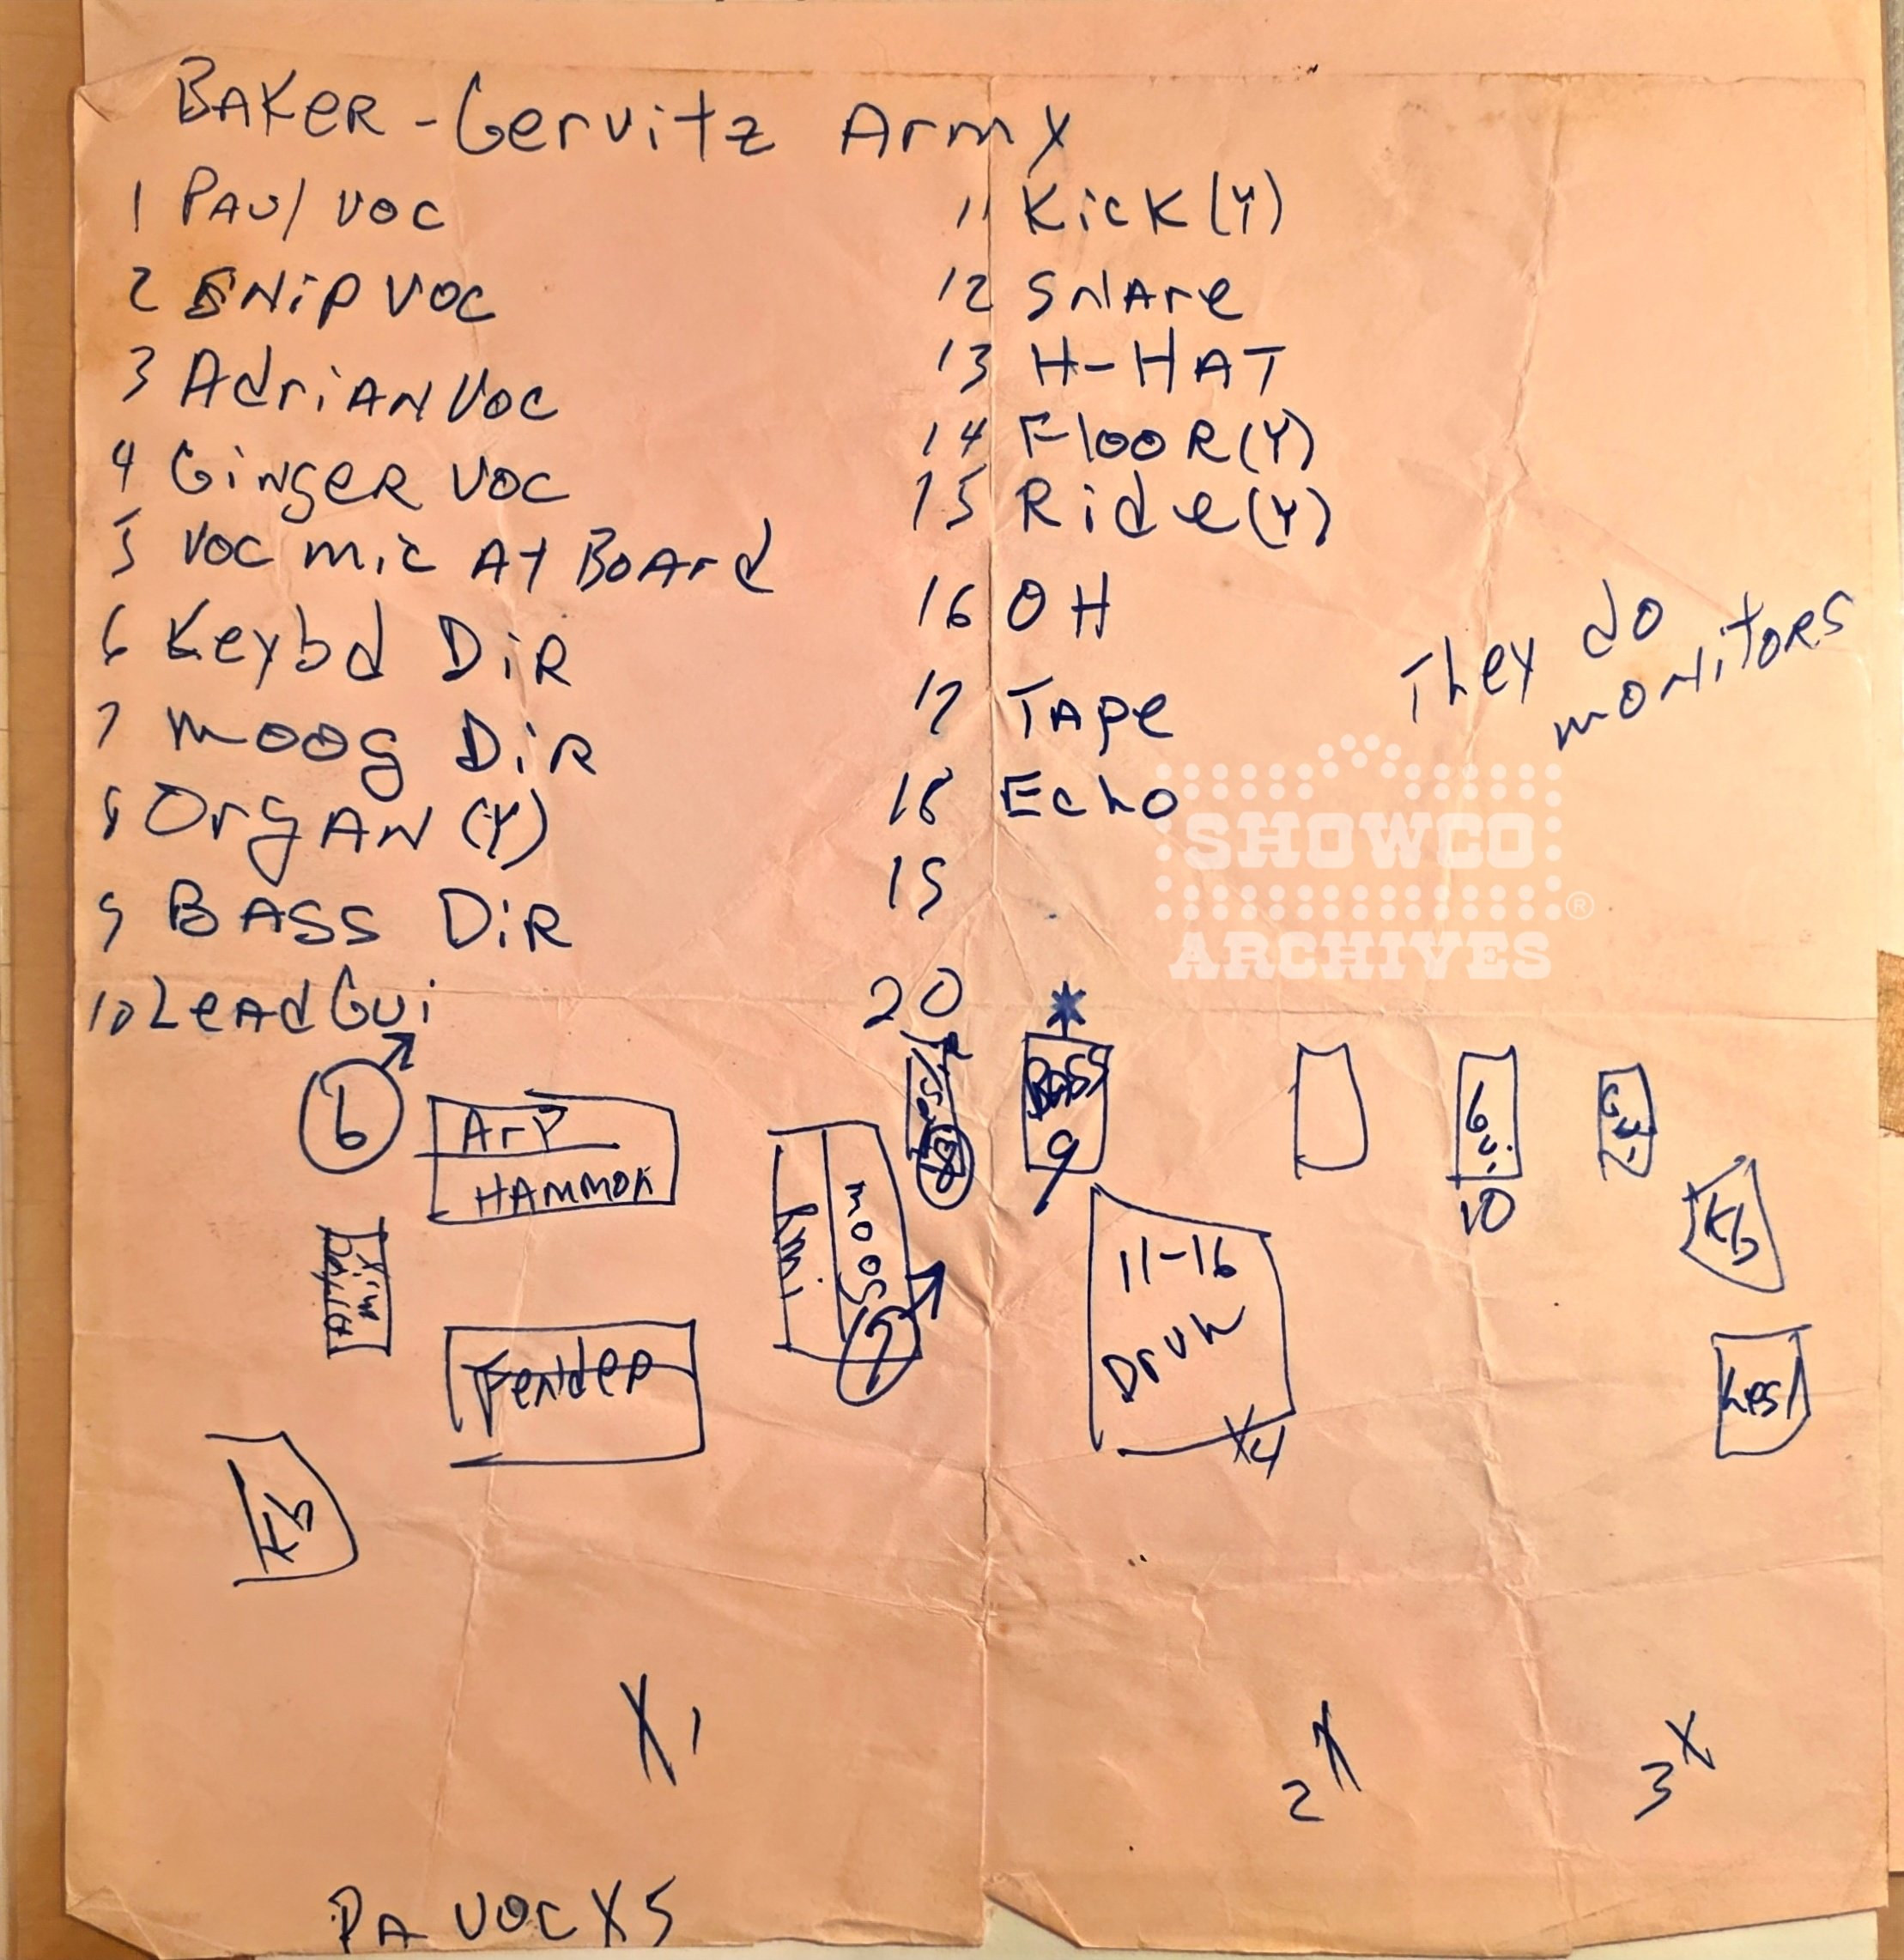 BAKER - Gervitz Army
1 PAUl VOC
2 SNiP VOC
3 AdriAN VOC
4 GiNgeR VOC
5 VOC mic AT BoArd
6 Keybd DiR
7 moog DiR
8 OrgAN (Y)
9 BASS DiR
10 LeAd Gui
11 KicK (Y)
12 SNAre
13 H-HAT
14 FlooR (Y)
15 Ride (Y)
16 OH
17 TApe
18 Echo
19
20
They do
moNiTORS
SHOWCO
®
ARCHIVES
6
Arp
HAMMON
Fender
Kb
RMI
moog
7
8
BASS
9
11-16
Drum
X4
Gui
10
Gui
Kb
Lesl
X 1
2 X
3 X
PA VOC X 5